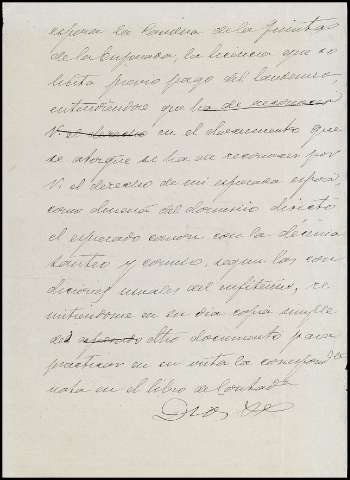 esposa la Condesa de la Quinta
de la Enjarada, la licencia que so
licita previo pago del laudemio,
entendiéndose que ha de reconocer
V. el derecho en el documento que
se otorgue se ha de reconocer por
V. el derecho de mi espresada esposa,
como dueña del dominio directo
el espresado canon con la décima
tanteo y comiso, segun las con
diciones usuales del enfitéusis, re
mitiéndome en su dia copia simple
del dicho documento para
practicar en su vista la correspondte
nota en el libro de Contada
Dios